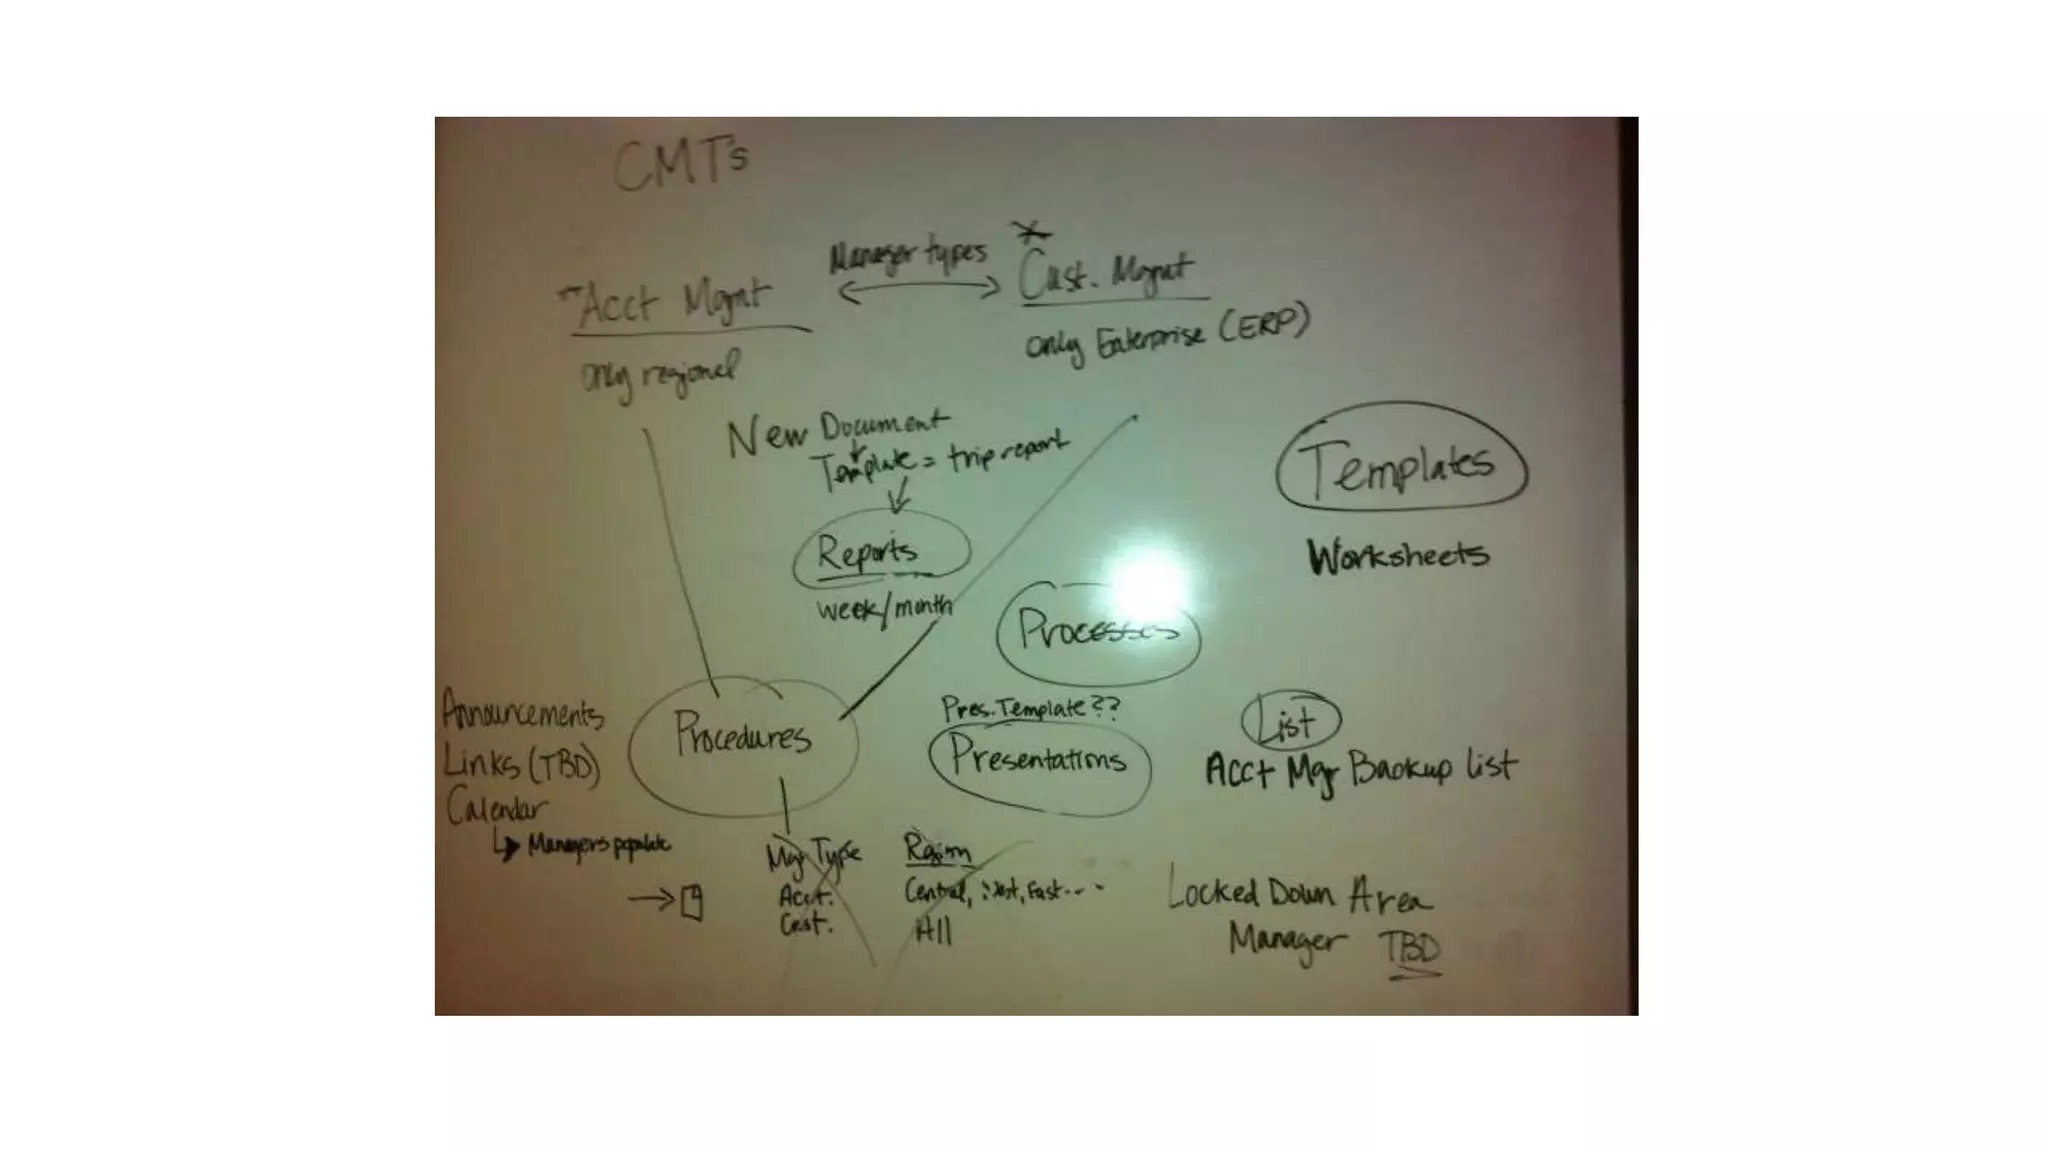 CMT's
Manager types
Acct Mgmt
Cust. Mgmt
only regional
only Enterprise (ERP)
New Document
Template = trip report
Templates
Reports
Worksheets
week/month
Processes
Announcements
Links (TBD)
Calendar
Managers populate
Procedures
Pres. Template??
Presentations
List
Acct Mgr Backup List
Mgr Type
Acct.
Cust.
Region
Central, West, East...
All
Locked Down Area
Manager TBD